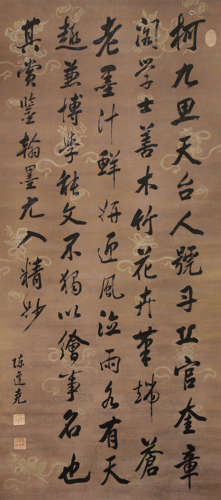 柯九思天台人號丹丘官奎章
閣学士善木竹花卉筆端蒼
老墨汁鮮妍迎風泣雨各有天
趣兼博學能文不獨以繪事名也
其赏鑒翰墨尤入精妙
陳廷